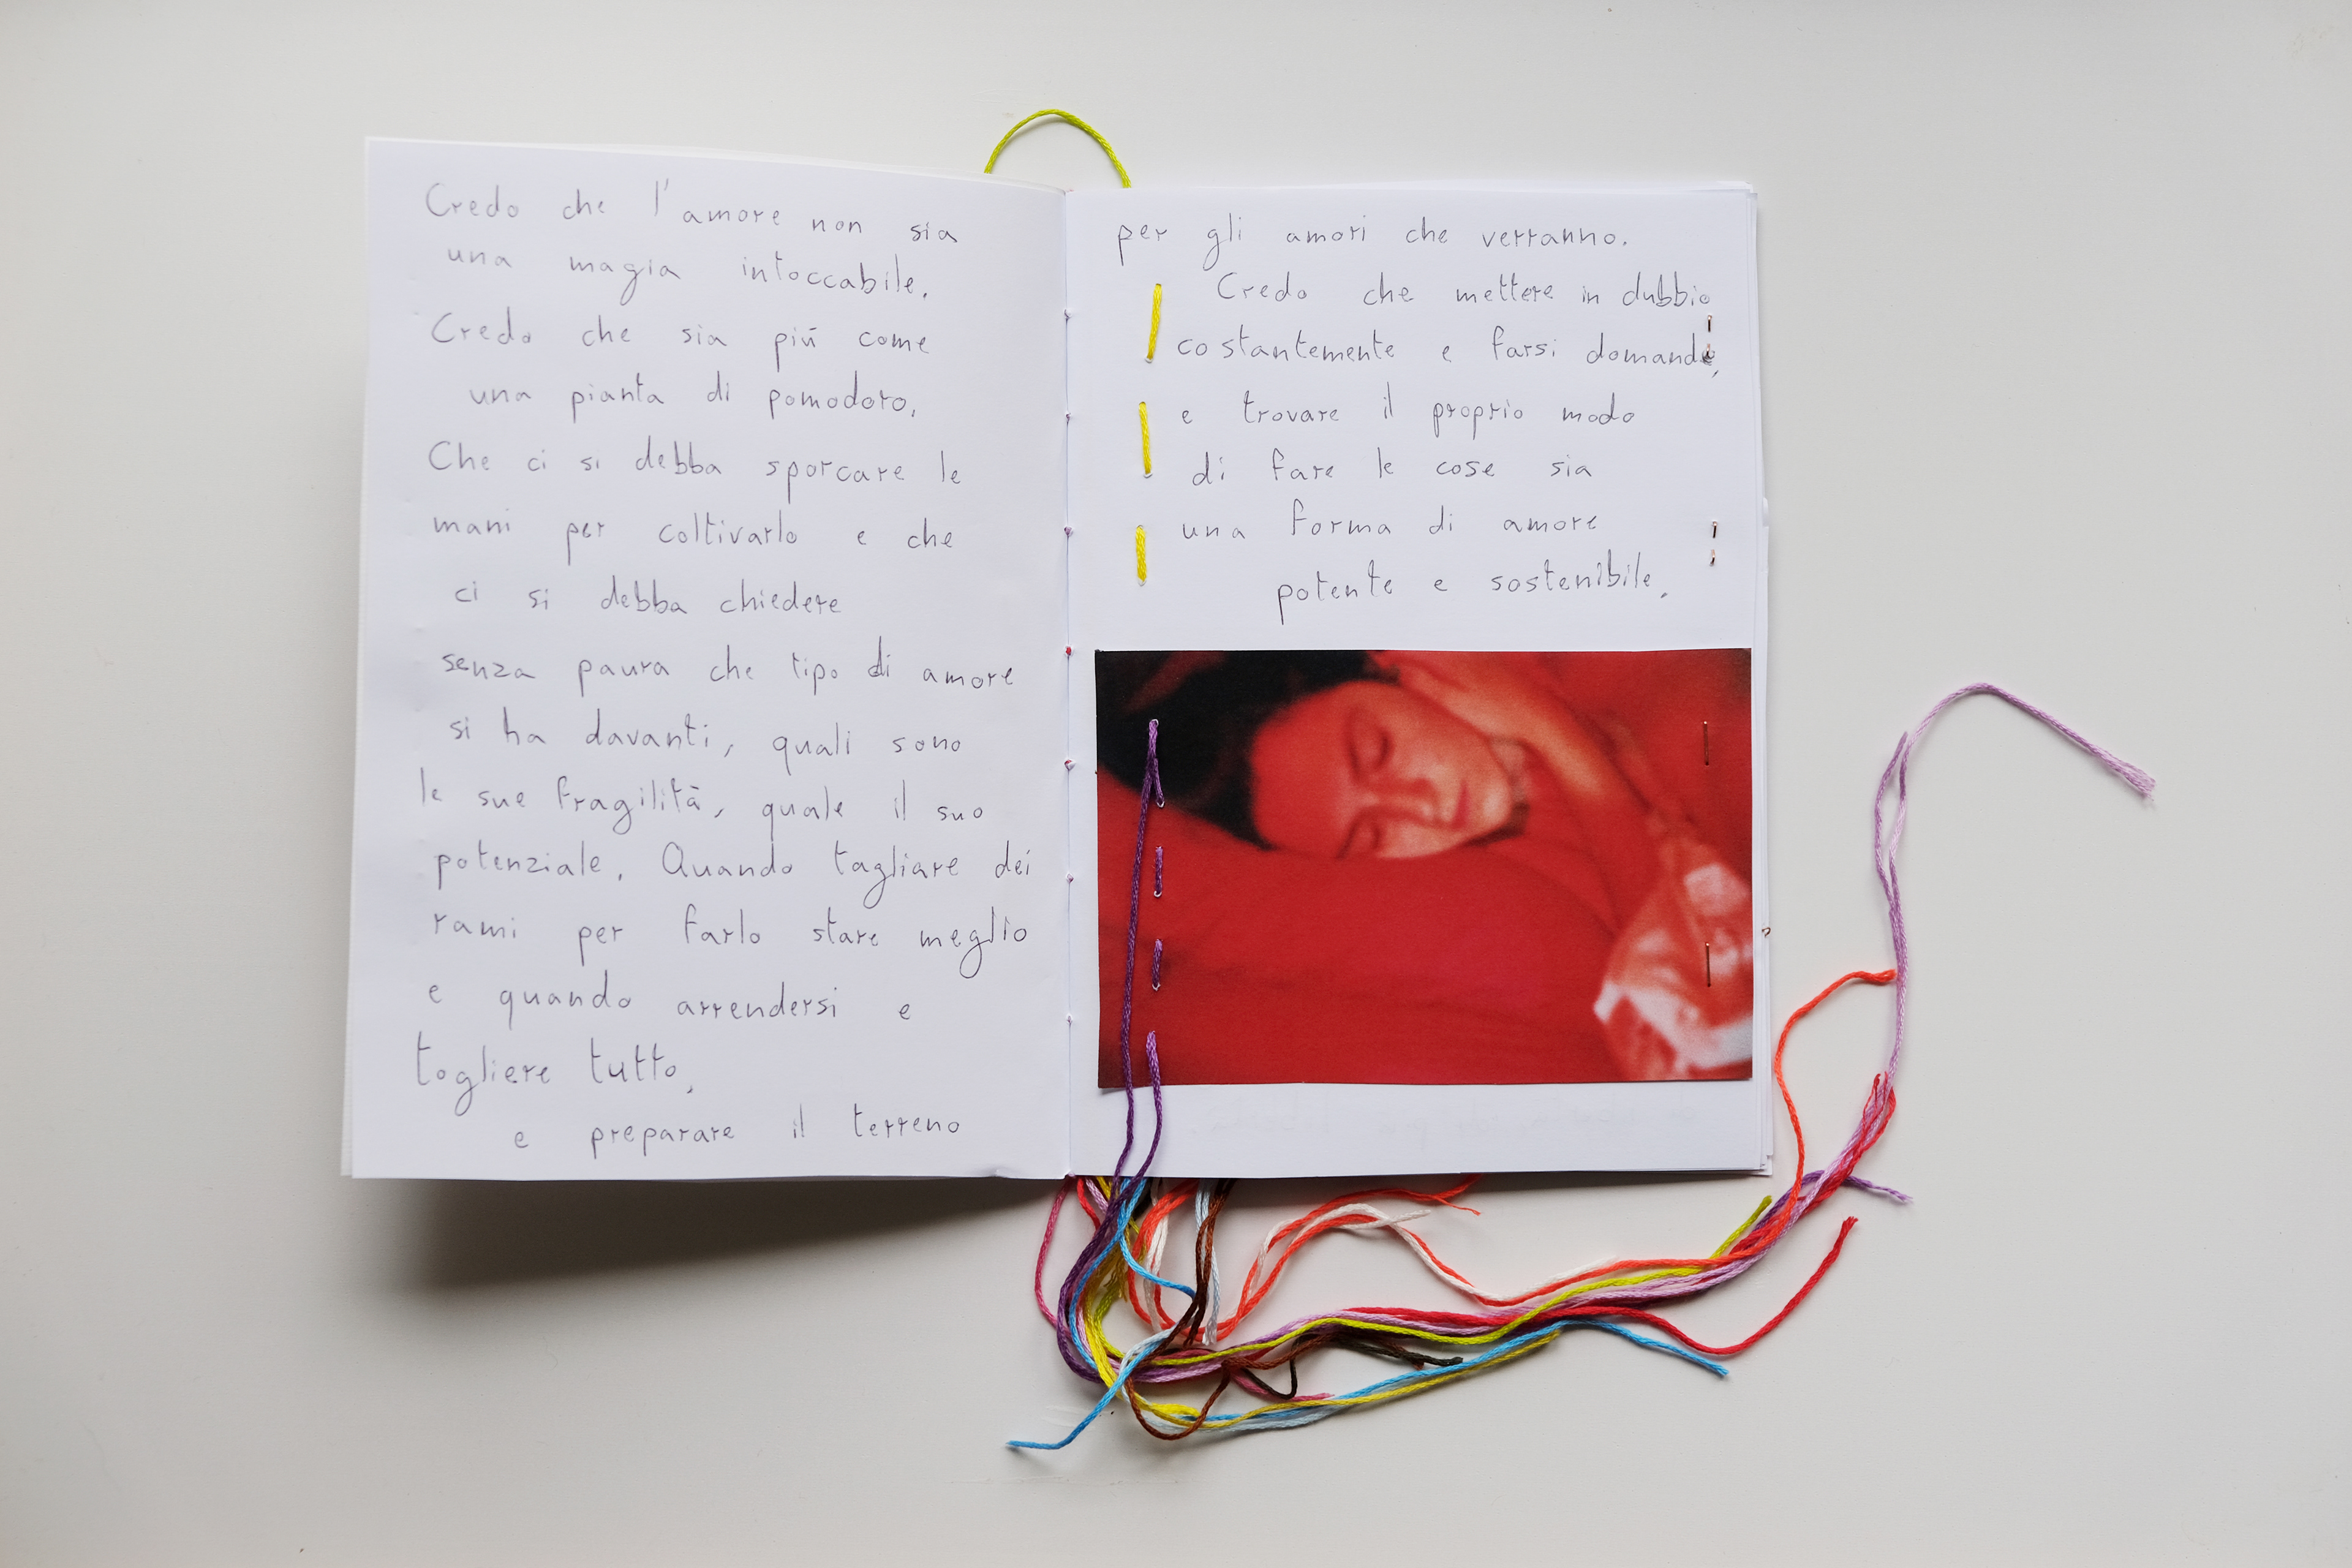 Credo che l'amore non sia
una magia intoccabile.
Credo che sia più come
una pianta di pomodoro.
Che ci si debba sporcare le
mani per coltivarlo e che
ci si debba chiedere
senza paura che tipo di amore
si ha davanti, quali sono
le sue fragilità, quale il suo
potenziale. Quando tagliare dei
rami per farlo stare meglio
e quando arrendersi e
togliere tutto,
e preparare il terreno
per gli amori che verranno.
Credo che mettere in dubbio
costantemente e farsi domande,
e trovare il proprio modo
di fare le cose sia
una forma di amore
potente e sostenibile.